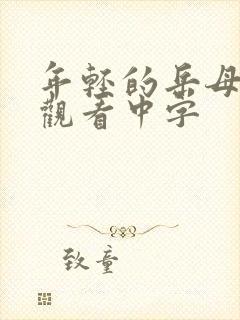 年轻的岳母
觀看中字
致童